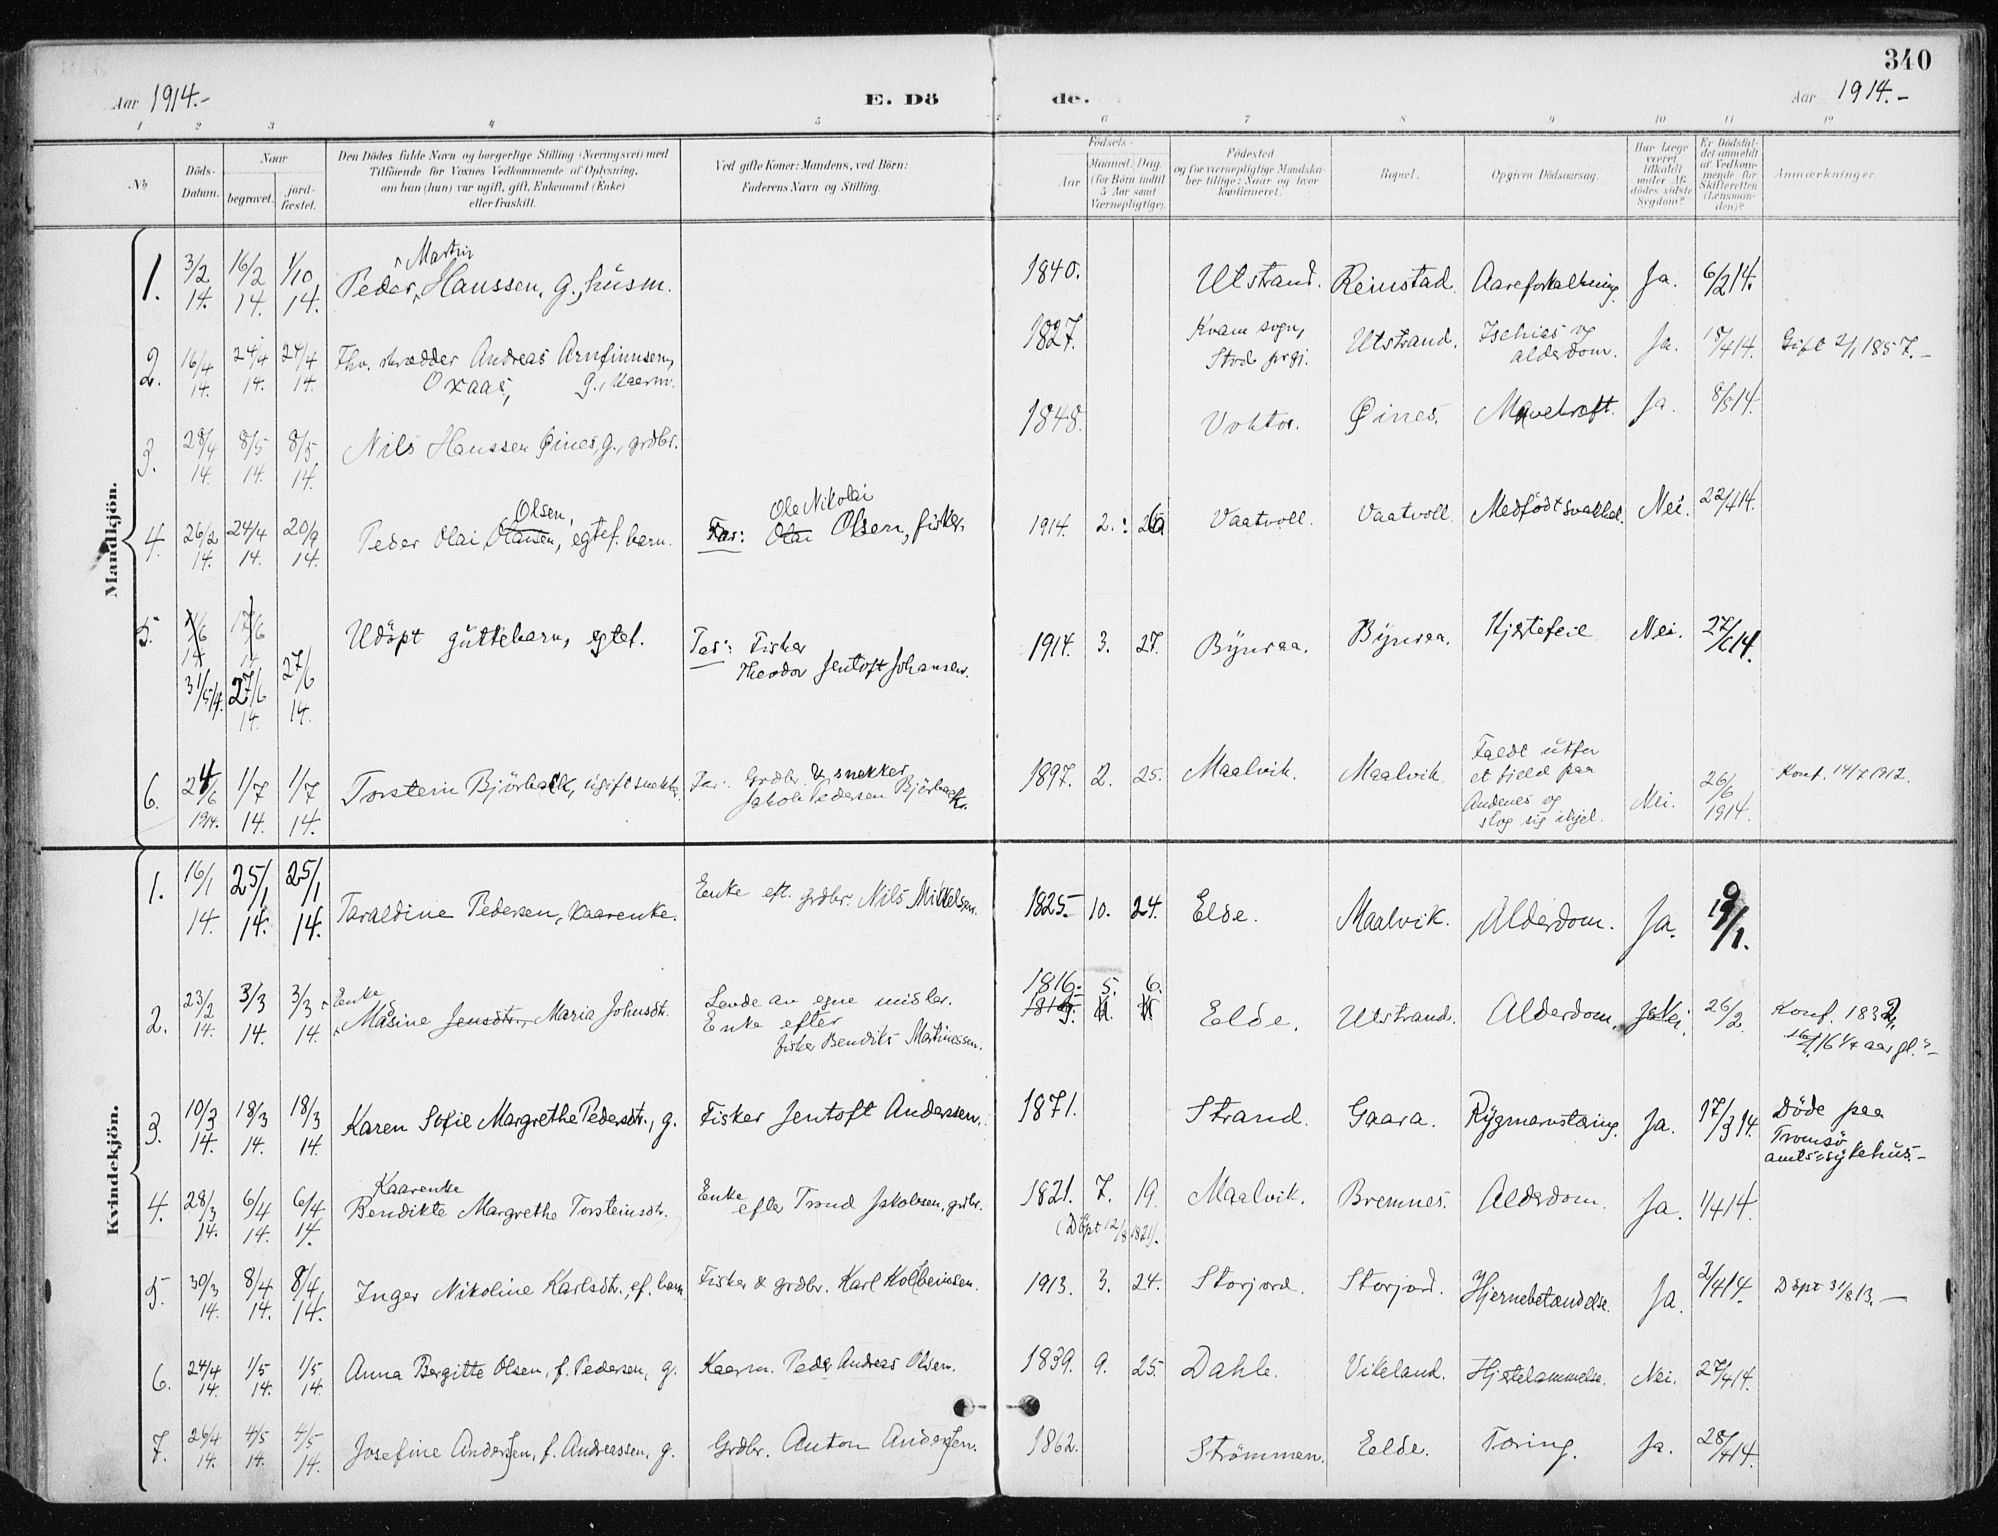 340
Aar 1914.-
E. Dö
de.
Aar 1914.-
1 2 3 4 5 6 7 8 9 10 11 12
No
Döds-Datum.
Naar
begravet.
jord-fæstet.
Den Dödes fulde Navn og borgerlige Stilling (Næringsvei) med
Tilföiende for Voxnes Vedkommende af Oplysning,
om han (hun) var ugift, gift, Enkemand (Enke)
eller fraskilt.
Ved gifte Koner: Mandens, ved Börn:
Faderens Navn og Stilling.
Födsels-
Aar
Maaned. Dag.
(for Börn indtil
5 Aar samt
Værnepligtige).
Födested
og for værnepligtige Mandska-
ber tillige: Naar og hvor
konfirmeret.
Bopæl.
Opgiven Dödsaarsag.
Har Læge
været
tilkaldt
under Af-
dödes sidste
Sygdom?
Er Dödsfal-
det anmeldt
af Vedkom-
mende for
Skifteretten
(Lensman-
den)?
Anmærkninger.
Mandkjön.
1. 3/2 14. 16/2 14. 1/10 14. Peder Martin Hanssen, g., husm. 1840. Utstrand. Reinstad. Aareforkalkning. Ja. 6/2 14.
2. 16/4 14. 24/4 14. 24/4 14. Fhv. skrædder Andreas Arnfinnsen,
Oxaas, g., kaarm. 1827. Kvam sogn, Stod prgj. Utstrand. Ischias og alderdom. Ja. 18/4 14. Gift 2/1 1857.-
3. 28/4 14. 8/5 14. 8/5 14. Nils Hanssen Øines, g., grdbr. 1848. Øines. Mavekræft. Ja. 8/5 14.
4. 26/2 14. 24/4 14. 20/9 14. Peder Olai Olsen, Olaisen, egtef. barn. Far: Ole Nikolai Olai Olsen, fisker. 1914. 2. 26 Vaatvoll. Vaatvoll. Medfödt svakhet. Nei. 22/4 14.
5. 31/5 14. 27/6 14. 27/6 14. Udöpt guttebarn, egtef. Far: Fisker
Theodor Jentoft Johansen. 1914. 3. 27. Bynraa. Bynraa. Hjertefeil Nei. 27/6 14.
6. 24/6 1914. 1/7 14. 1/7 14. Torstein Björbæk, ugift snekker. Far: Grdbr. & snekker
Jakob Pedersen Björbæk. 1897. 2. 25. Maalvik. Maalvik. Faldt utfor
et fjeld paa
Andenes og
slog sig ihjel. Nei. 26/6 1914. Konf. 14/7 1912.
Kvindekjön.
1. 16/1 14. 25/1 14. 25/1 14. Taraldine Pedersen, kaarenke. Enke eft. grdbr. Nils Mikkelsen. 1825. 10. 24. Elde. Maalvik. Alderdom. Ja. 19/1.
2. 23/2 14. 3/3 14. 3/3 14. Enke
Masine Jensdtr., Maria Johnsdtr. Levde av egne midler.
Enke efter
fisker Bendiks Martinessen. 1816. 5. 6. Elde. Utstrand. Alderdom. Nei. 26/2. Konf. 1832,
16 1/4 aar gl."-
3. 10/3 14. 18/3 14. 18/3 14. Karen Sofie Margrethe Pedersdtr., g. Fisker Jentoft Anderssen. 1871. Strand. Gaara. Rygmarvstæring. Ja. 17/3 14. Döde paa
Tromsö
amts-sykehus.-
4. 28/3 14. 6/4 14. 6/4 14. Kaarenke
Bendikte Margrethe Torsteinsdtr. Enke
efter Trond Jakobsen, grdbr. 1821. 7. 19. Maalvik. Bremnes. Alderdom. Ja. 1/4 14.
(Döpt 12/8 1821).
5. 30/3 14. 8/4 14. 8/4 14. Inger Nikoline Karlsdtr., ef. barn. Fisker & grdbr. Karl Kolbeinsen. 1913. 3. 24. Storjord. Storjord. Hjernebetændelse. Ja. 2/4 14. Döpt 31/8 13.-
6. 24/4 14. 1/5 14. 1/5 14. Anna Bergitte Olsen, f. Pedersen, g. Kaarm. Peder Andreas Olsen. 1839. 9. 25. Dahle. Vikeland. Hjertelammelse. Nei. 27/4 14.
7. 26/4 14. 4/5 14. 4/5 14. Josefine Anderssen, f. Andreassen, g. Grdbr. Anton Anderssen. 1862. Strömmen. Eelde. Tæring. Ja. 28/4 14.